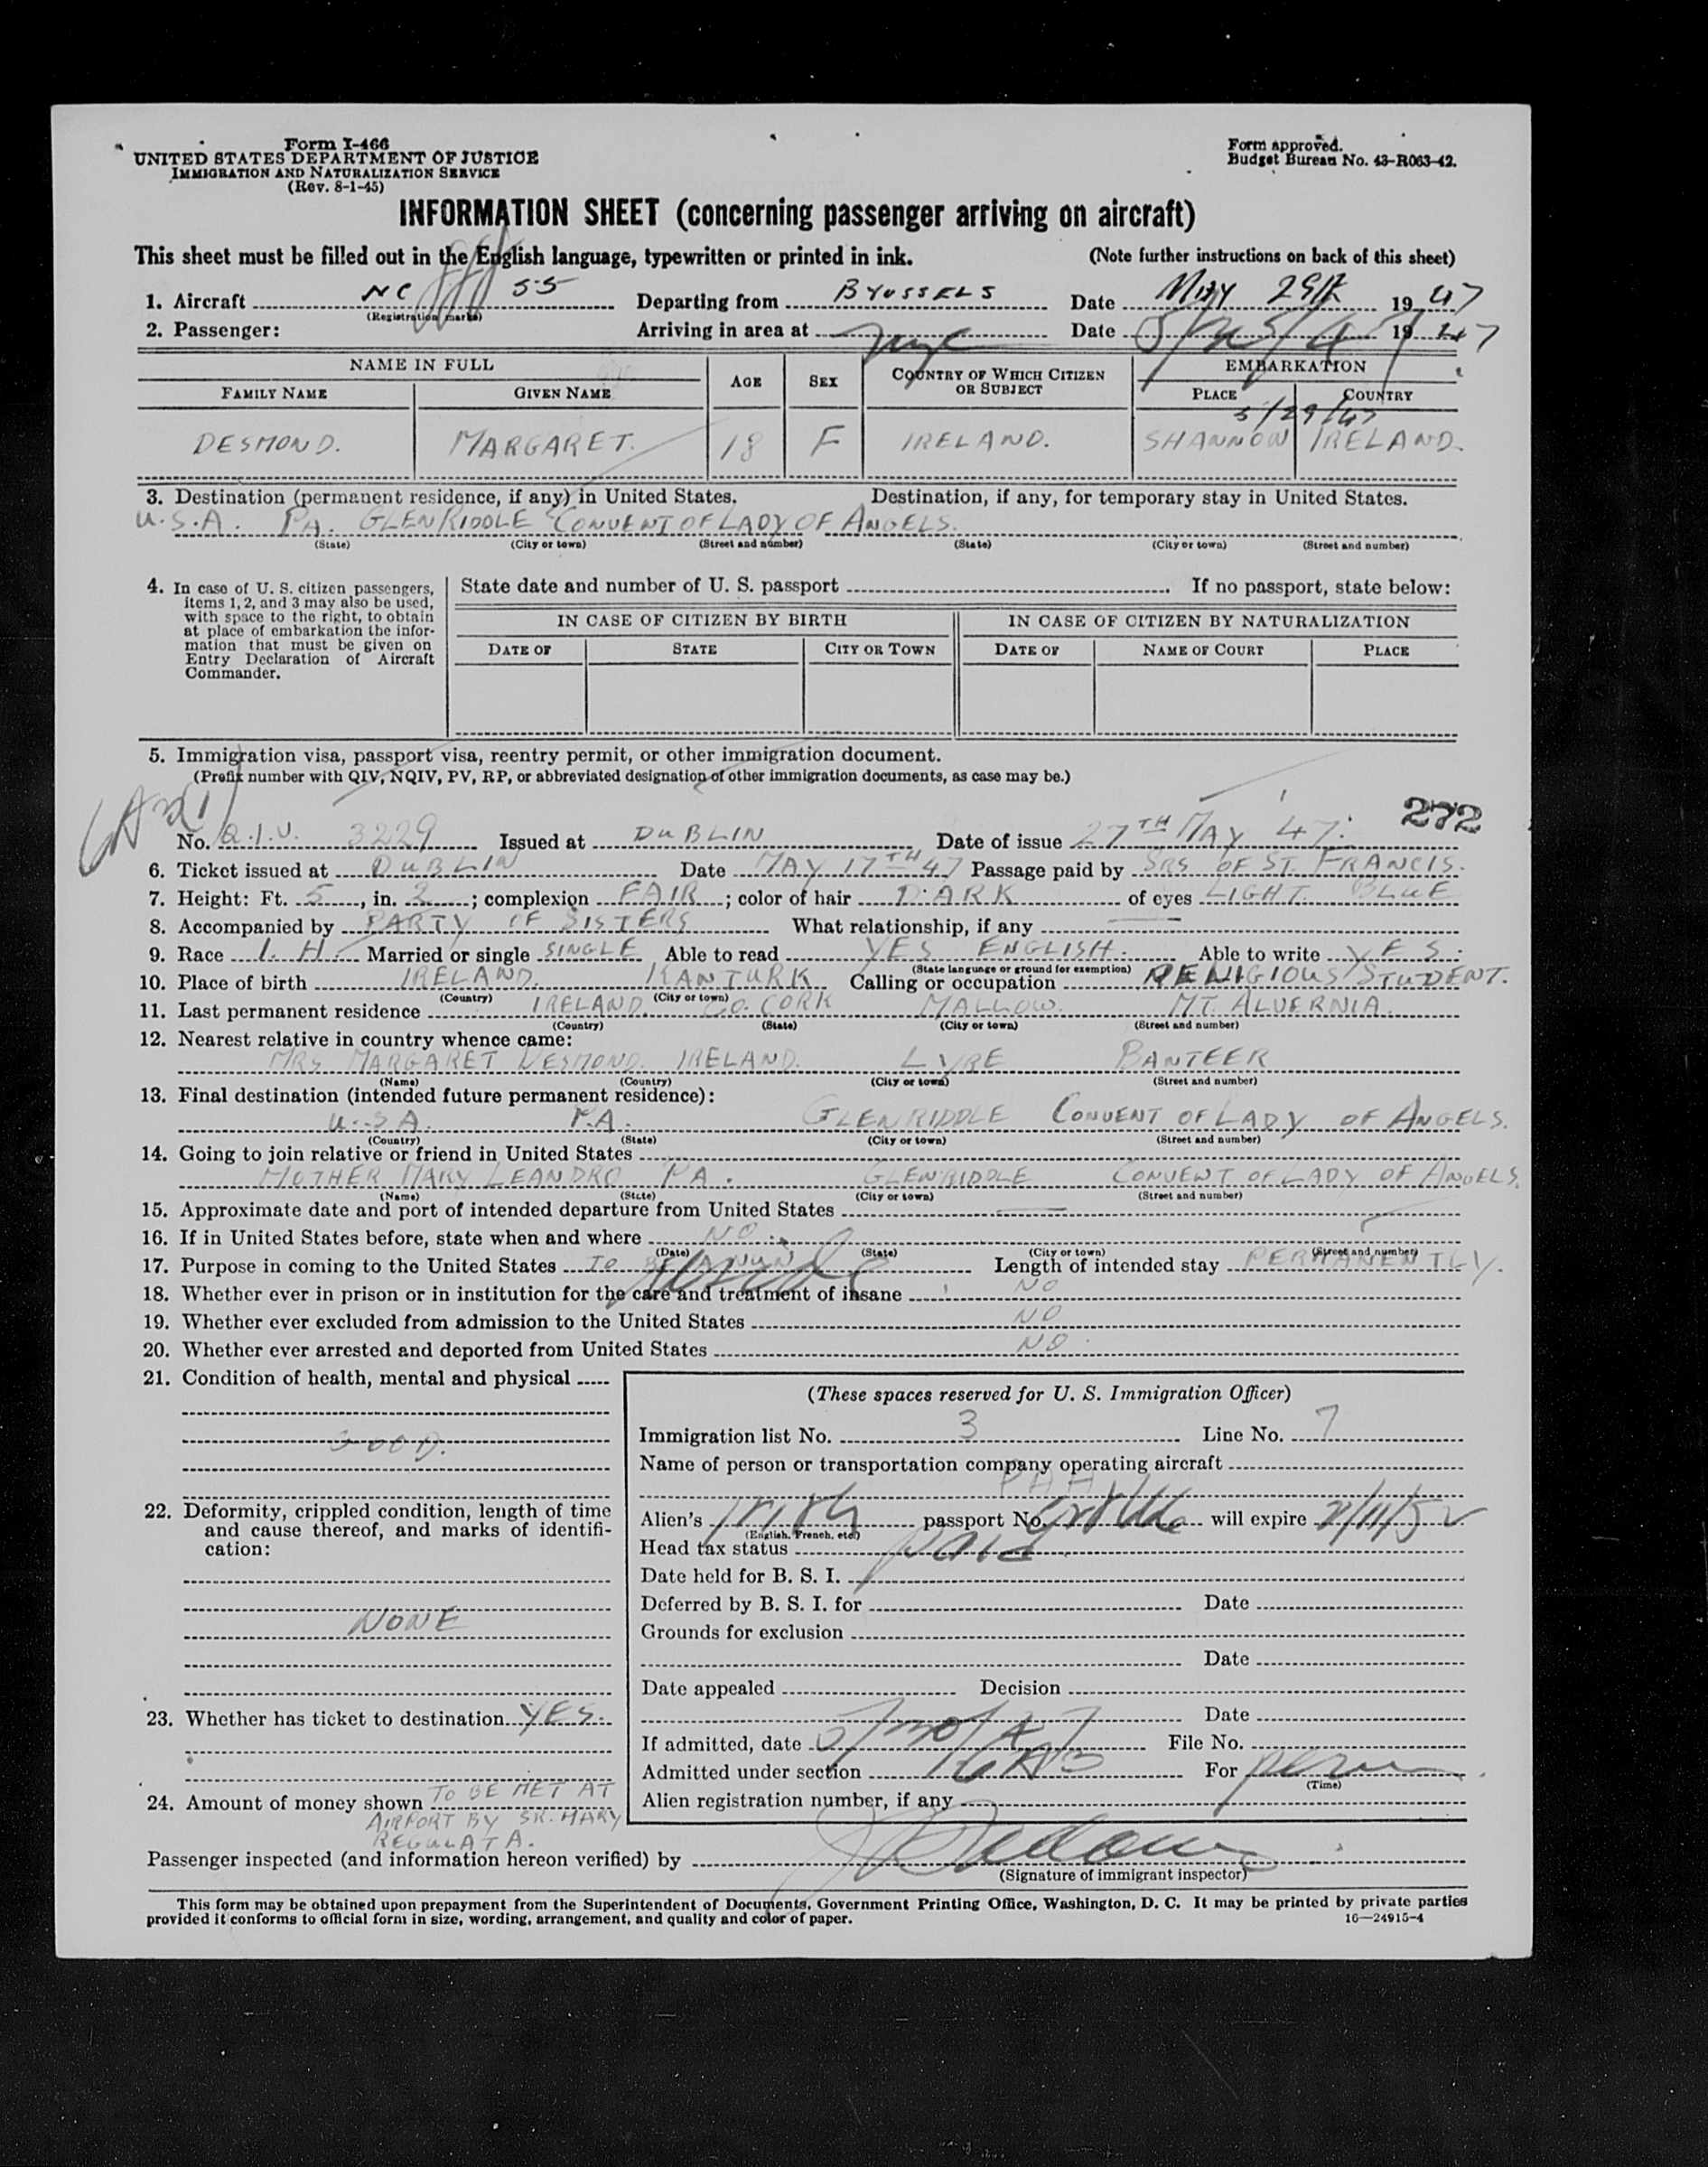 Form I-466
UNITED STATES DEPARTMENT OF JUSTICE
IMMIGRATION AND NATURALIZATION SERVICE
(Rev. 8-1-45)
Form approved.
Budget Bureau No. 43-R063-42.
INFORMATION SHEET (concerning passenger arriving on aircraft)
This sheet must be filled out in the English language, typewritten or printed in ink. (Note further instructions on back of this sheet)
1. Aircraft NC 55 Departing from BYUSSELS Date May 29th 1947
(Registration marks)
2. Passenger: Arriving in area at nyc Date 1947
NAME IN FULL AGE SEX COUNTRY OF WHICH CITIZEN OR SUBJECT EMBARKATION
FAMILY NAME GIVEN NAME PLACE COUNTRY
5/29/47
DESMOND. MARGARET. 18 F IRELAND. SHANNON IRELAND.
3. Destination (permanent residence, if any) in United States. Destination, if any, for temporary stay in United States.
U.S.A. PA. GLENRIDDLE CONVENT OF LADY OF ANGELS.
(State) (City or town) (Street and number) (State) (City or town) (Street and number)
4. In case of U. S. citizen passengers, items 1, 2, and 3 may also be used, with space to the right, to obtain at place of embarkation the information that must be given on Entry Declaration of Aircraft Commander.
State date and number of U. S. passport If no passport, state below:
IN CASE OF CITIZEN BY BIRTH IN CASE OF CITIZEN BY NATURALIZATION
DATE OF STATE CITY OR TOWN DATE OF NAME OF COURT PLACE
5. Immigration visa, passport visa, reentry permit, or other immigration document.
(Prefix number with QIV, NQIV, PV, RP, or abbreviated designation of other immigration documents, as case may be.)
272
No. Q.I.V. 3229 Issued at DUBLIN Date of issue 27TH MAY 47.
6. Ticket issued at DUBLIN Date MAY 17TH 47 Passage paid by SRS OF ST. FRANCIS.
7. Height: Ft. 5, in. 2; complexion FAIR; color of hair DARK of eyes LIGHT BLUE
8. Accompanied by PARTY OF SISTERS What relationship, if any
9. Race I.H. Married or single SINGLE Able to read YES ENGLISH. Able to write YES.
(State language or ground for exemption)
10. Place of birth IRELAND. KANTURK Calling or occupation RELIGIOUS STUDENT.
(Country) (City or town)
11. Last permanent residence IRELAND. CO. CORK MALLOW. MT. ALVERNIA.
(Country) (State) (City or town) (Street and number)
12. Nearest relative in country whence came:
MRS MARGARET DESMOND. IRELAND. LYRE BANTEER
(Name) (Country) (City or town) (Street and number)
13. Final destination (intended future permanent residence):
U.S.A. PA. GLENRIDDLE CONVENT OF LADY OF ANGELS.
(Country) (State) (City or town) (Street and number)
14. Going to join relative or friend in United States
MOTHER MARY LEANDRO PA. GLENRIDDLE CONVENT OF LADY OF ANGELS.
(Name) (State) (City or town) (Street and number)
15. Approximate date and port of intended departure from United States
16. If in United States before, state when and where NO.
(Date) (State) (City or town) (Street and number)
17. Purpose in coming to the United States TO BE A NUN reside Length of intended stay PERMANENTLY.
18. Whether ever in prison or in institution for the care and treatment of insane NO
19. Whether ever excluded from admission to the United States NO
20. Whether ever arrested and deported from United States NO
21. Condition of health, mental and physical
GOOD.
22. Deformity, crippled condition, length of time and cause thereof, and marks of identification:
NONE
23. Whether has ticket to destination YES.
24. Amount of money shown TO BE MET AT
AIRPORT BY SR. MARY
REGULATA.
(These spaces reserved for U. S. Immigration Officer)
Immigration list No. 3 Line No. 7
Name of person or transportation company operating aircraft
PAA
Alien's Irish passport No. will expire
(English, French, etc.)
Head tax status paid
Date held for B. S. I.
Deferred by B. S. I. for Date
Grounds for exclusion
Date
Date appealed Decision
Date
If admitted, date 5/30/47 File No.
Admitted under section For perm
(Time)
Alien registration number, if any
Passenger inspected (and information hereon verified) by
(Signature of immigrant inspector)
This form may be obtained upon prepayment from the Superintendent of Documents, Government Printing Office, Washington, D. C. It may be printed by private parties
provided it conforms to official form in size, wording, arrangement, and quality and color of paper. 16—24915-4